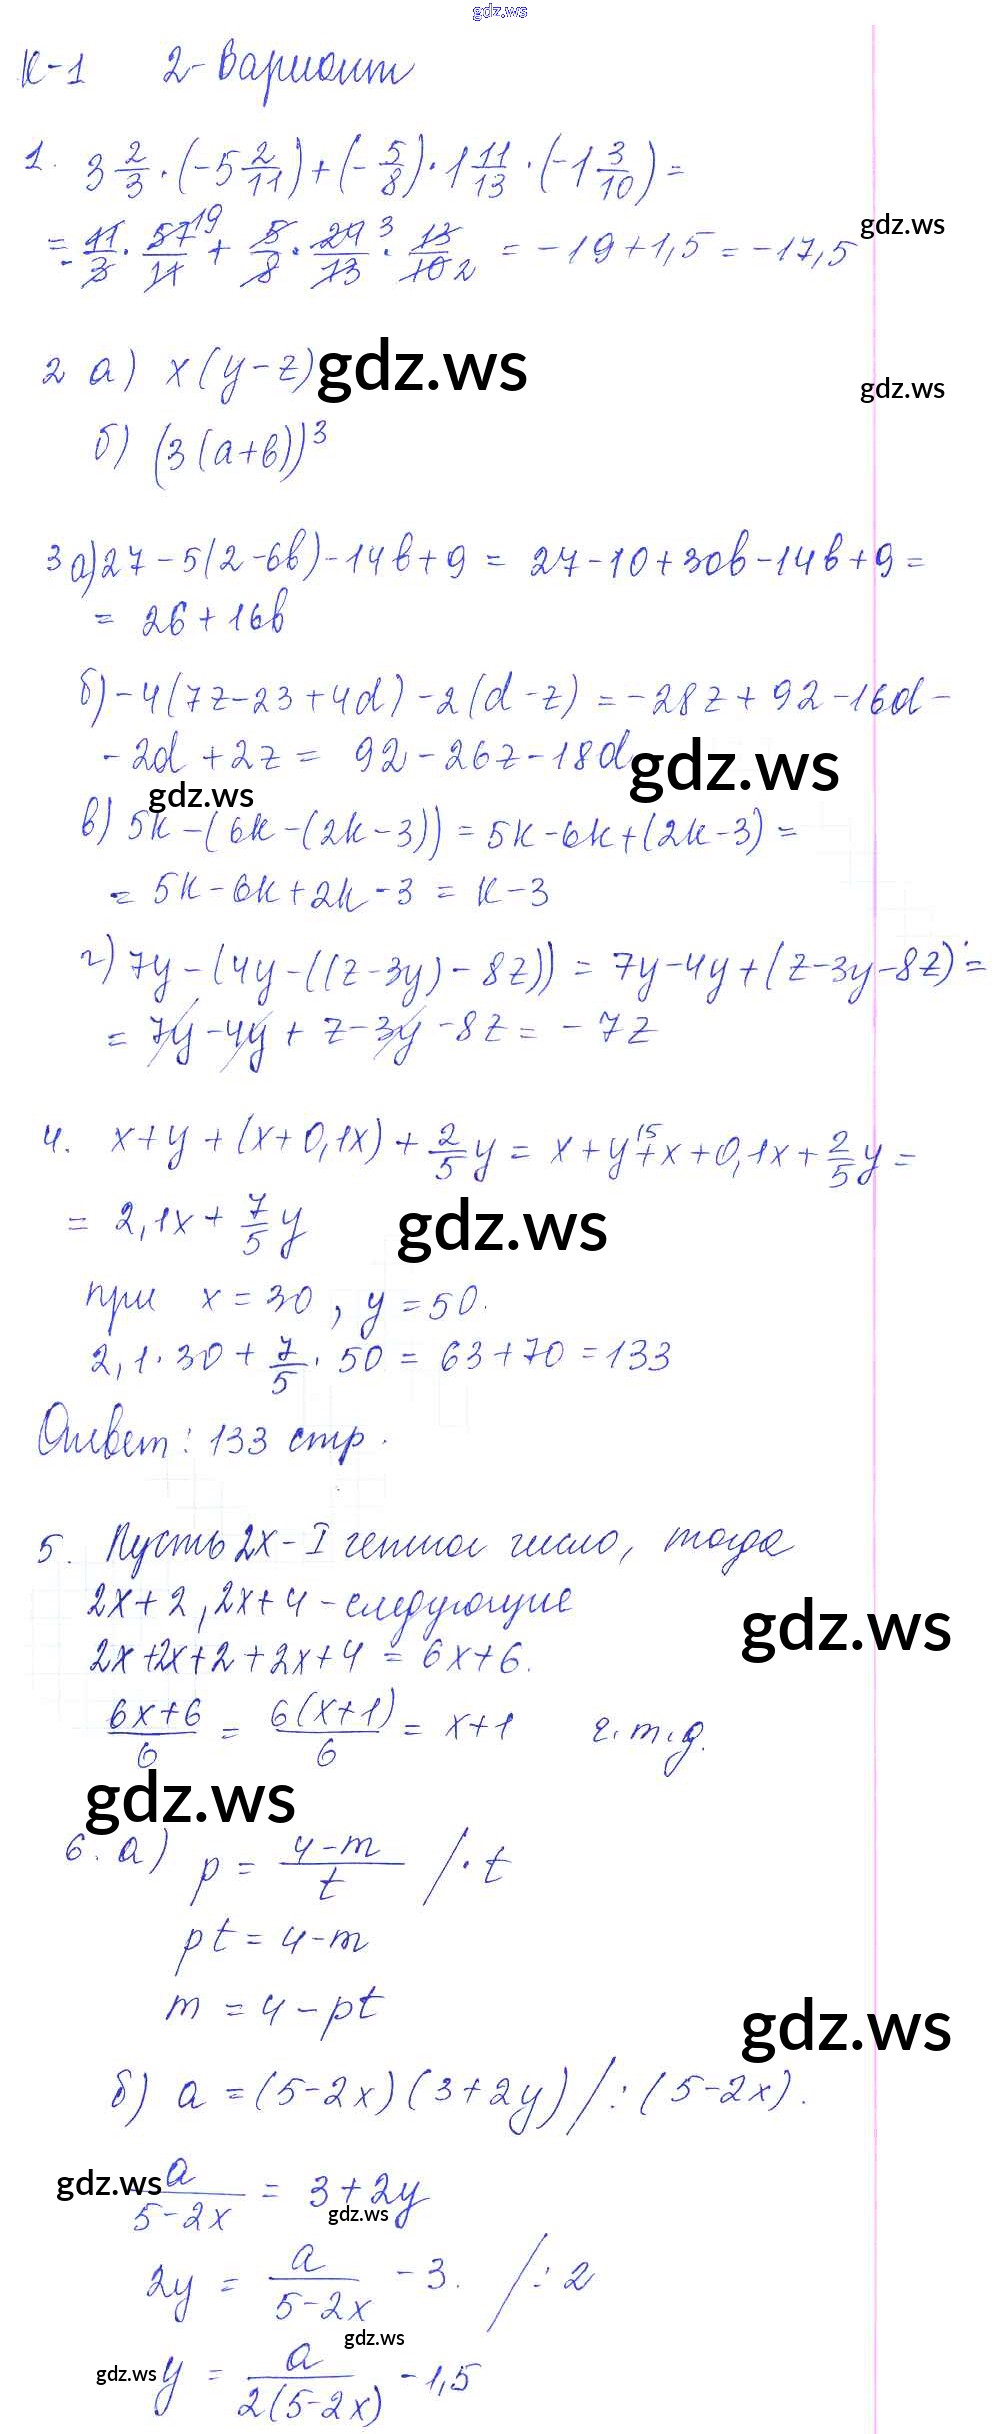 gdz.ws
К-1 2-Вариант
1. 3 2/3 · (-5 2/11) + (-5/8) · 1 11/13 · (-1 3/10) =
= - 11/3 · 57/11 19 + 5/8 · 24/13 3 · 13/10 2 = -19+1,5 = -17,5
gdz.ws
2 а) x(y-z)
gdz.ws
gdz.ws
б) (3(a+b))³
3 а) 27-5(2-6b)-14b+9 = 27-10+30b-14b+9 =
= 26+16b
б) -4(7z-23+4d)-2(d-z) = -28z+92-16d-
-2d+2z = 92-26z-18d
gdz.ws
gdz.ws
в) 5k-(6k-(2k-3)) = 5k-6k+(2k-3) =
= 5k-6k+2k-3 = k-3
г) 7y-(4y-((z-3y)-8z)) = 7y-4y+(z-3y-8z) =
= 7y-4y+z-3y-8z = -7z
4. x+y+(x+0,1x)+2/5 y = x+y 15 +x+0,1x+2/5 y =
= 2,1x+7/5 y
gdz.ws
при x=30, y=50.
2,1·30+7/5·50 = 63+70 = 133
Ответ: 133 стр.
5. Пусть 2x-I четное число, тогда
2x+2, 2x+4-следующие
gdz.ws
2x+2x+2+2x+4 = 6x+6.
6x+6/6 = 6(x+1)/6 = x+1 ч.т.д.
gdz.ws
6. а) p = 4-m/t /·t
pt = 4-m
m = 4-pt
gdz.ws
б) a = (5-2x)(3+2y) /:(5-2x).
gdz.ws
a/5-2x = 3+2y
gdz.ws
2y = a/5-2x -3. /:2
gdz.ws
gdz.ws
y = a/2(5-2x) -1,5